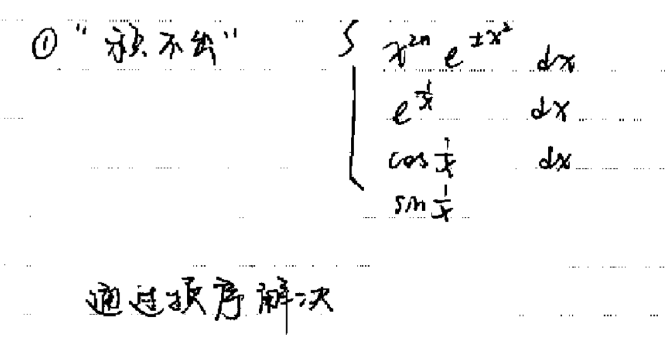 ① "积不出" ∫ x²ⁿ e^{±x²} dx
e^{1/x} dx
cos 1/x dx
sin 1/x
通过换序解决